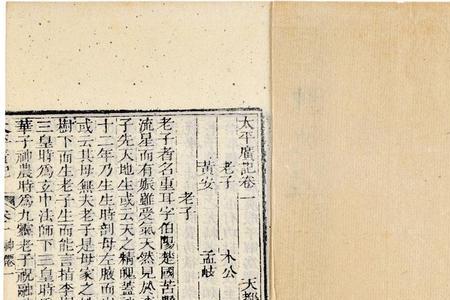 太平廣記卷一
天都
老子 木公
黃安 孟岐
老子
老子者名重耳字伯陽楚國苦縣
流星而有娠雖受氣天然見於李
子先天地生或云天之精魄蓋
十二年乃生生時剖母左腋而出
或云其母無夫老子是母家之姓
樹下而生老子生而能言指李樹
三皇時爲玄中法師下三皇時
華子神農時爲九靈老子祝融
太平廣記 卷一 神僊一